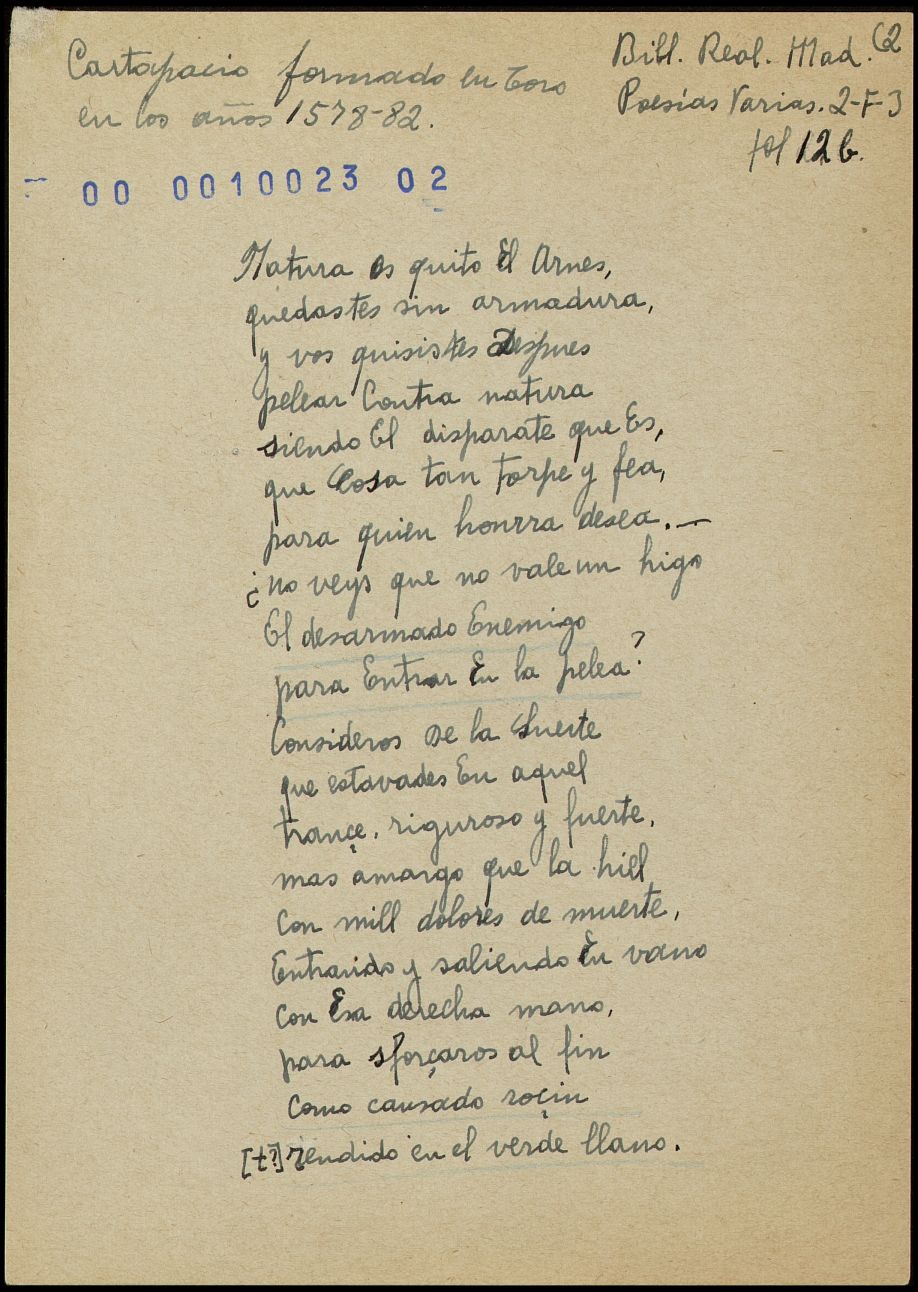 Cartapacio formado en Toro
en los años 1578-82.
Bibl. Real. Mad. (2
Poesías Varias. 2-F-3
fol 126.
- 00 0010023 02
Natura os quito El Arnes,
quedastes sin armadura,
y vos quisistes Despues
pelear Contra natura
siendo El disparate que Es,
que Cosa tan torpe y fea,
para quien honrra desea. —
¿no veys que no vale un higo
El desarmado Enemigo
para Entrar En la pelea?
Consideros De la Suerte
que estavades En aquel
trançe, riguroso y fuerte,
mas amargo que la hiel
Con mill dolores de muerte,
Entrando y saliendo En vano
Con Esa derecha mano,
para sforçaros al fin
Como cansado roçin
[t?] rendido en el verde llano.